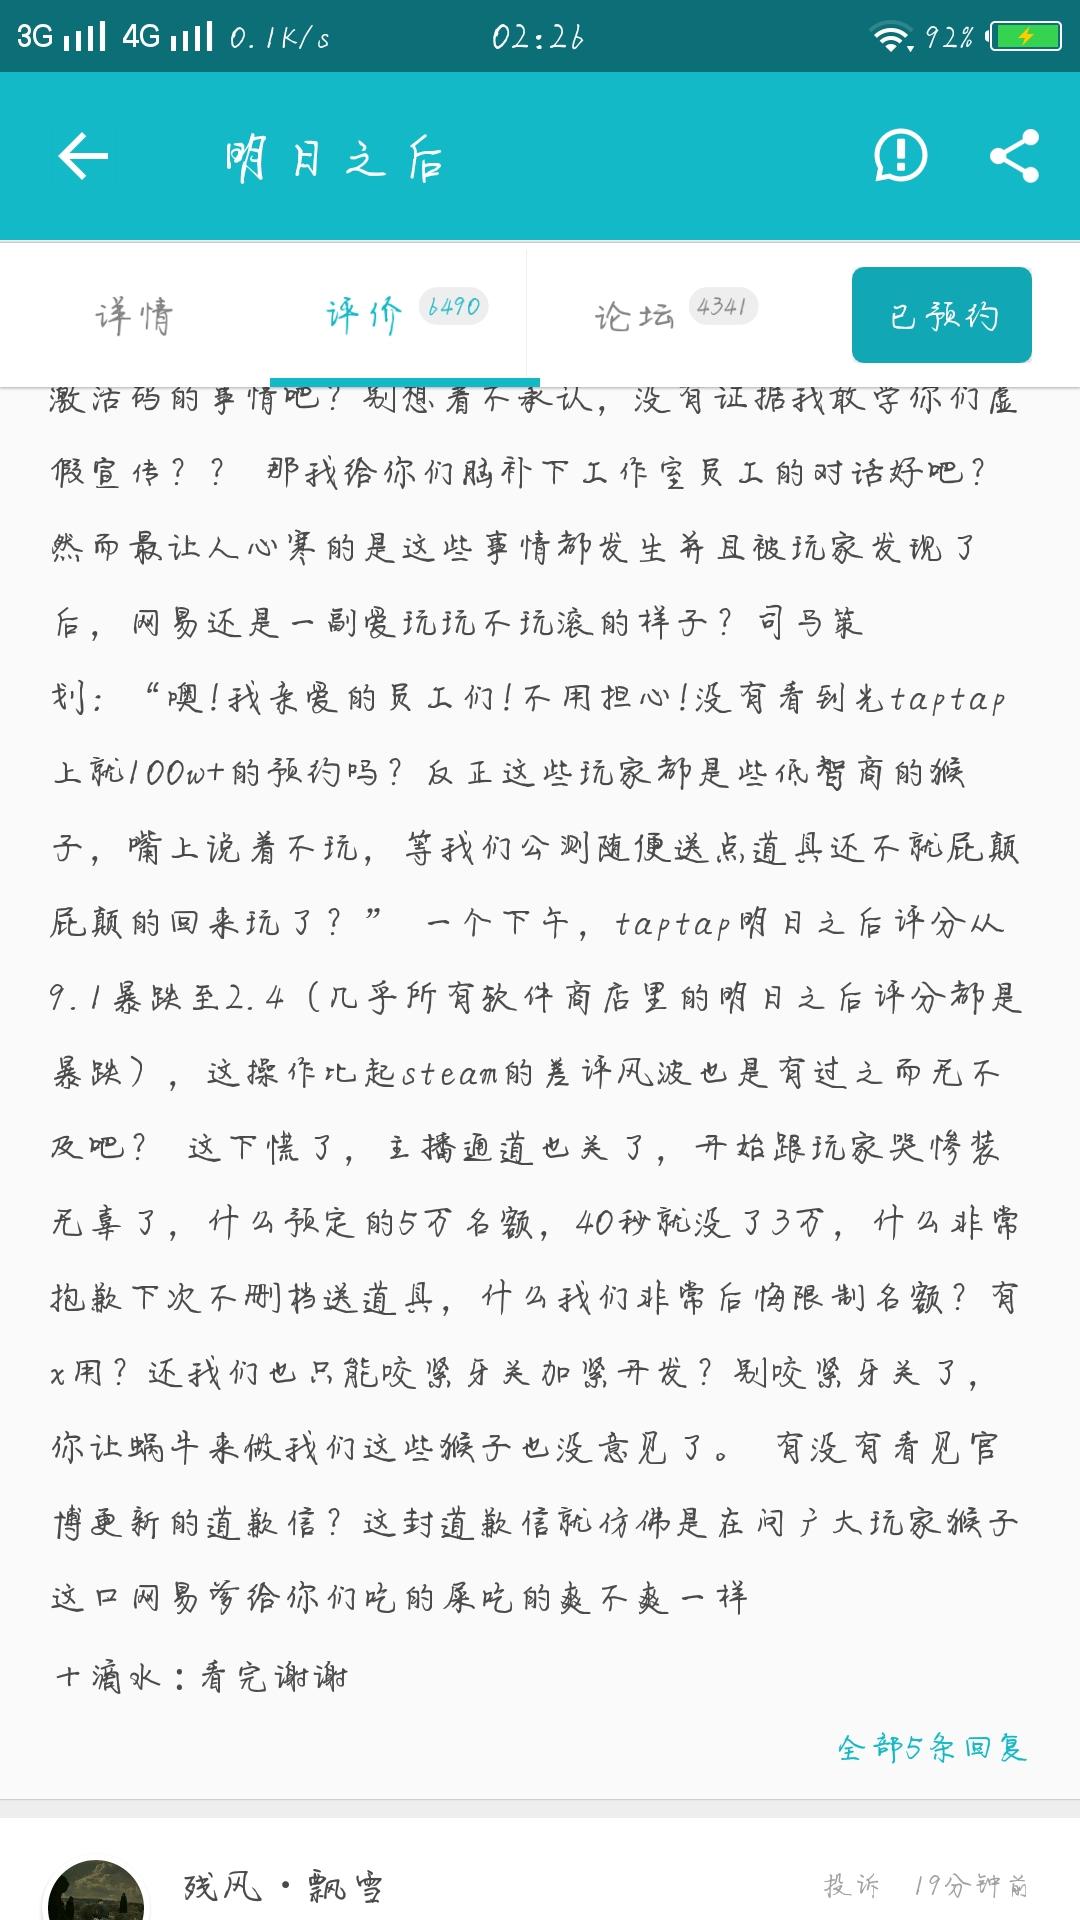 3G 4G 0.1K/s 02:26 92%
明日之后
详情 评价 6490 论坛 4341 已预约
激活码的事情吧？别想着不承认，没有证据我敢学你们虚
假宣传？？ 那我给你们脑补下工作室员工的对话好吧？
然而最让人心寒的是这些事情都发生并且被玩家发现了
后，网易还是一副爱玩玩不玩滚的样子？司马策
划：“噢！我亲爱的员工们！不用担心！没有看到光taptap
上就100w+的预约吗？反正这些玩家都是些低智商的猴
子，嘴上说着不玩，等我们公测随便送点道具还不就屁颠
屁颠的回来玩了？” 一个下午，taptap明日之后评分从
9.1暴跌至2.4（几乎所有软件商店里的明日之后评分都是
暴跌），这操作比起steam的差评风波也是有过之而无不
及吧？ 这下慌了，主播通道也关了，开始跟玩家哭惨装
无辜了，什么预定的5万名额，40秒就没了3万，什么非常
抱歉下次不删档送道具，什么我们非常后悔限制名额？有
x用？还我们也只能咬紧牙关加紧开发？别咬紧牙关了，
你让蜗牛来做我们这些猴子也没意见了。 有没有看见官
博更新的道歉信？这封道歉信就仿佛是在问广大玩家猴子
这口网易爹给你们吃的屎吃的爽不爽一样
十滴水：看完谢谢
全部5条回复
残风·飘雪 投诉 19分钟前